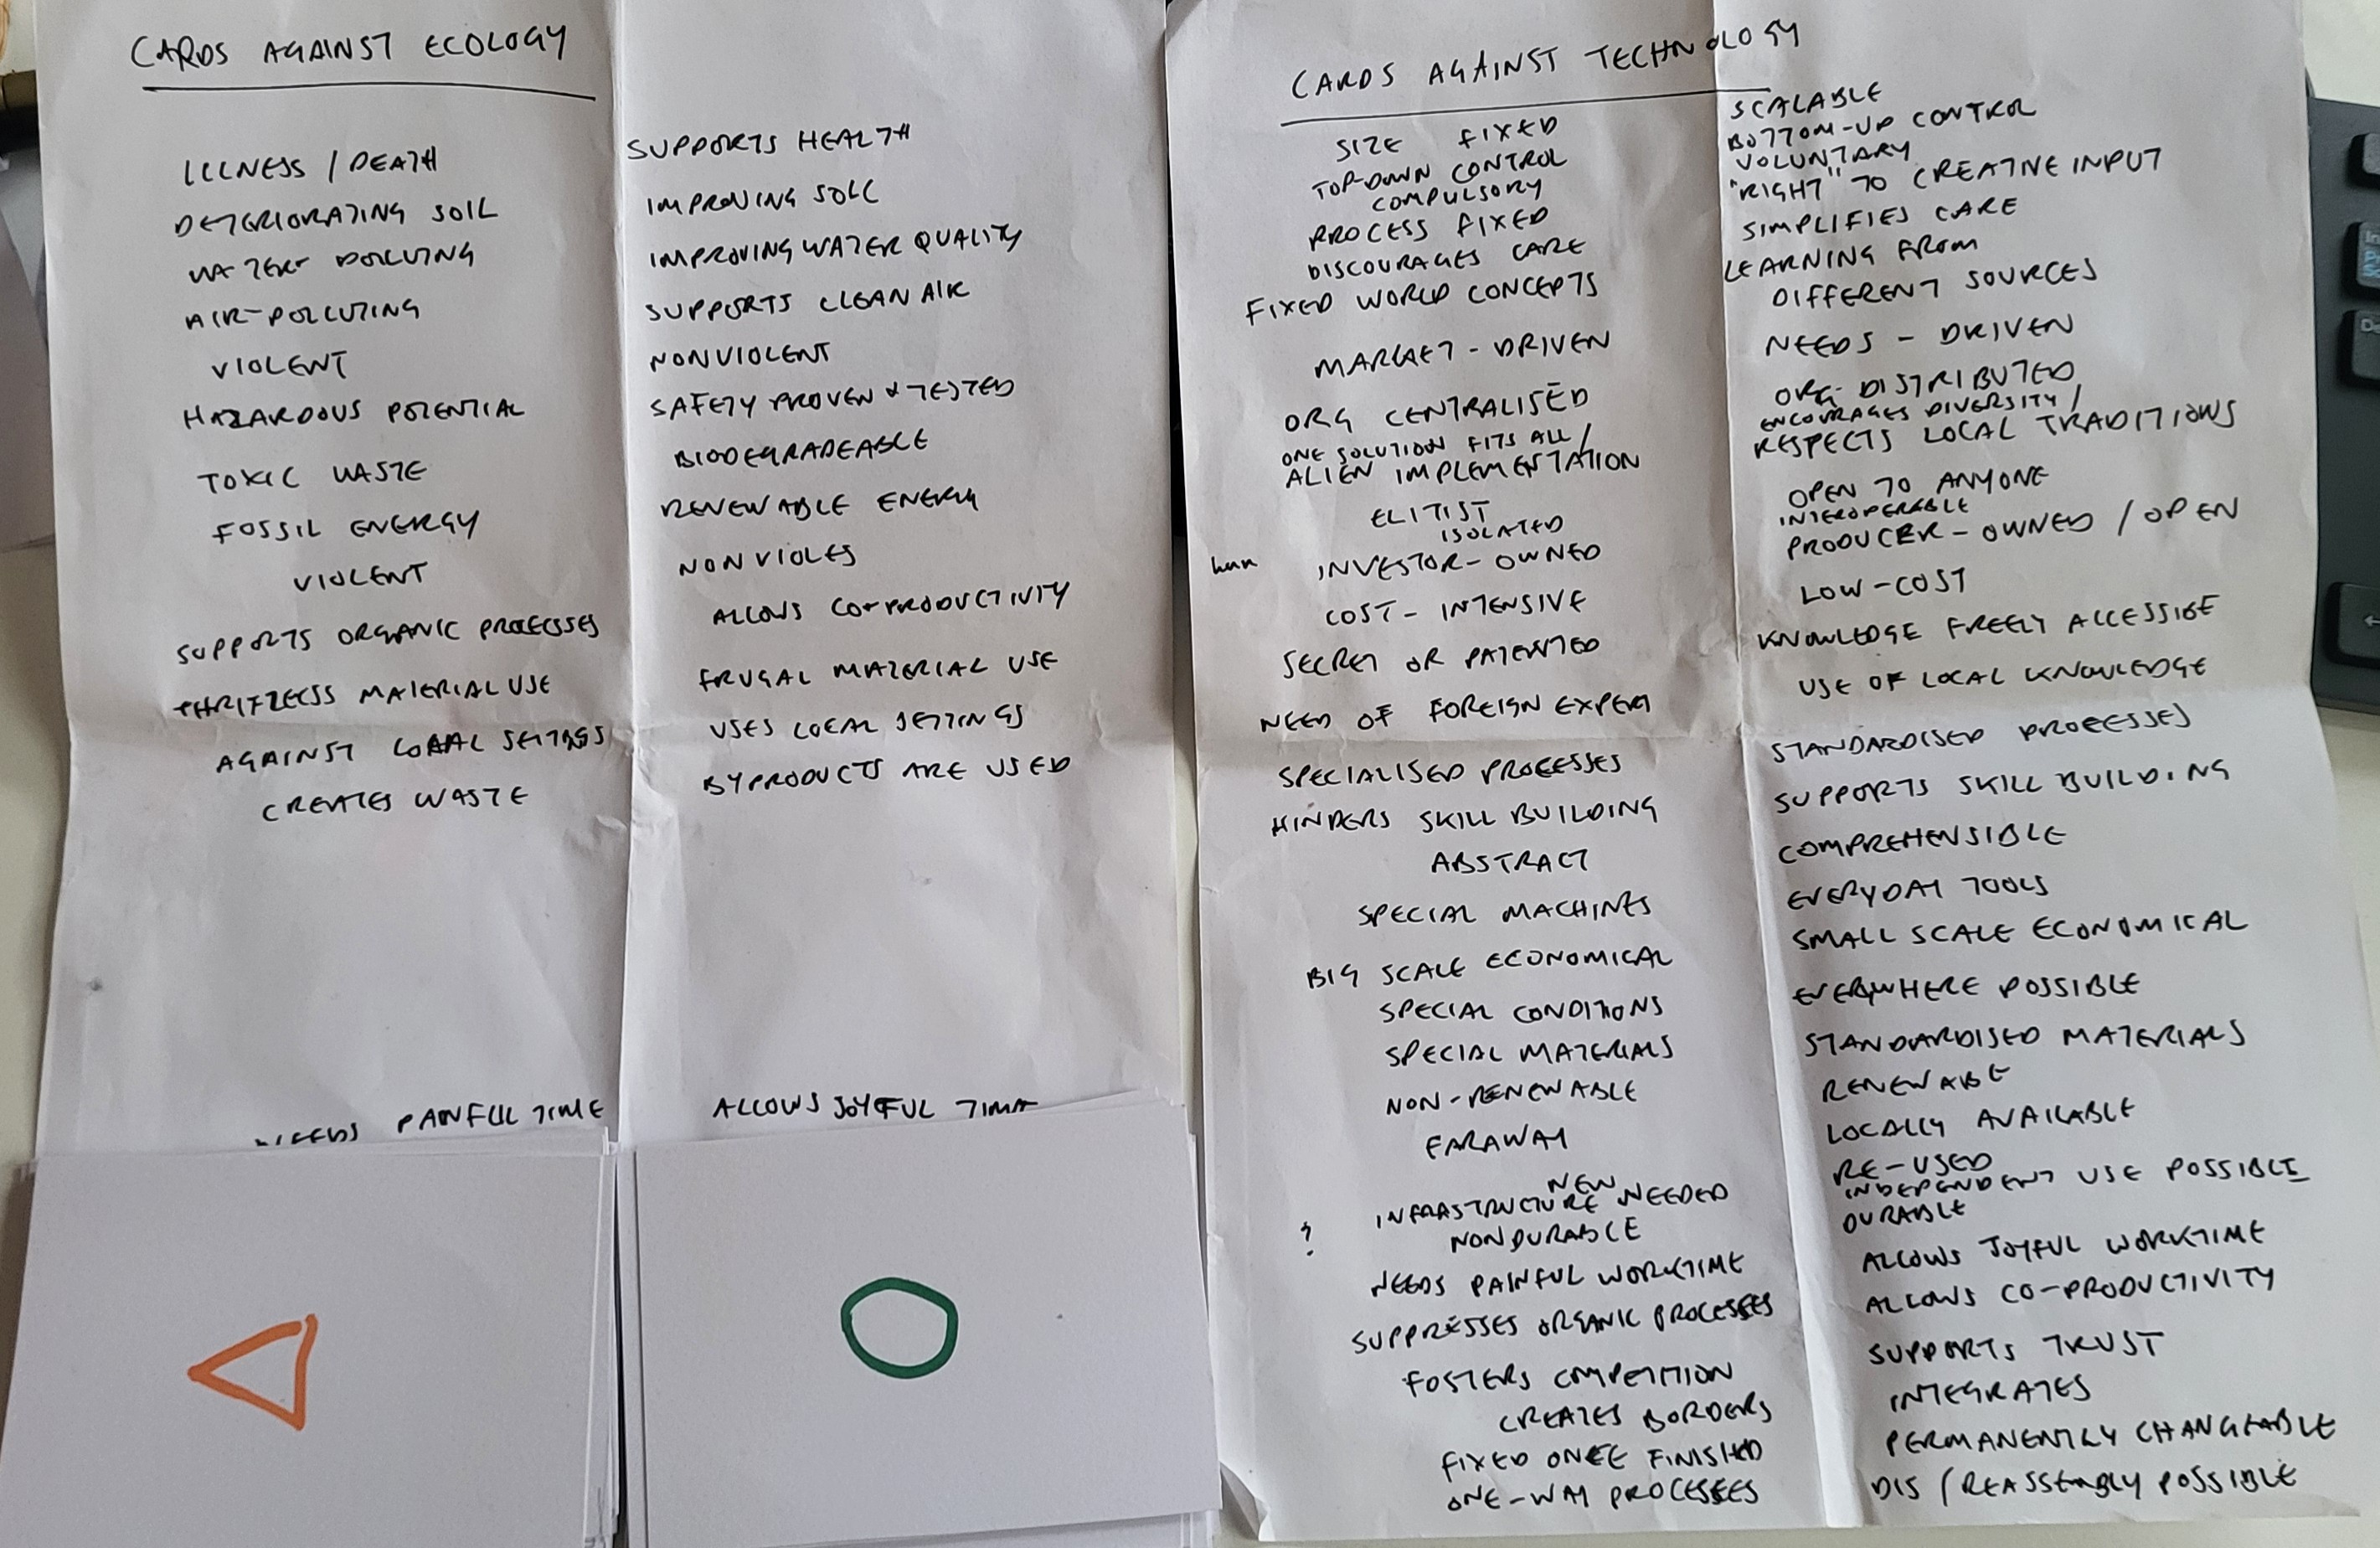 CARDS AGAINST ECOLOGY
ILLNESS / DEATH
DETERIORATING SOIL
WATER POLLUTING
AIR-POLLUTING
VIOLENT
HAZARDOUS POTENTIAL
TOXIC WASTE
FOSSIL ENERGY
VIOLENT
SUPPORTS ORGANIC PROCESSES
THRIFTLESS MATERIAL USE
AGAINST LOCAL SETTINGS
CREATES WASTE
NEEDS PAINFUL TIME
SUPPORTS HEALTH
IMPROVING SOIL
IMPROVING WATER QUALITY
SUPPORTS CLEAN AIR
NONVIOLENT
SAFETY PROVEN & TESTED
BIODEGRADEABLE
RENEWABLE ENERGY
NON VIOLES
ALLOWS CO-PRODUCTIVITY
FRUGAL MATERIAL USE
USES LOCAL SETTINGS
BYPRODUCTS ARE USED
ALLOWS JOYFUL TIME
CARDS AGAINST TECHNOLOGY
SIZE FIXED
TOP-DOWN CONTROL
COMPULSORY
PROCESS FIXED
DISCOURAGES CARE
FIXED WORLD CONCEPTS
MARKET-DRIVEN
ORG CENTRALISED
ONE SOLUTION FITS ALL /
ALIEN IMPLEMENTATION
ELITIST
ISOLATED
INVESTOR-OWNED
COST-INTENSIVE
SECRET OR PATENTED
NEED OF FOREIGN EXPERT
SPECIALISED PROCESSES
HINDERS SKILL BUILDING
ABSTRACT
SPECIAL MACHINES
BIG SCALE ECONOMICAL
SPECIAL CONDITIONS
SPECIAL MATERIALS
NON-RENEWABLE
FARAWAY
NEW
INFRASTRUCTURE NEEDED
? NONDURABLE
NEEDS PAINFUL WORKTIME
SUPPRESSES ORGANIC PROCESSES
FOSTERS COMPETITION
CREATES BORDERS
FIXED ONCE FINISHED
ONE-WAY PROCESSES
SCALABLE
BOTTOM-UP CONTROL
VOLUNTARY
"RIGHT" TO CREATIVE INPUT
SIMPLIFIES CARE
LEARNING FROM
DIFFERENT SOURCES
NEEDS-DRIVEN
ORG DISTRIBUTED
ENCOURAGES DIVERSITY /
RESPECTS LOCAL TRADITIONS
OPEN TO ANYONE
INTEROPERABLE
PRODUCER-OWNED / OPEN
LOW-COST
KNOWLEDGE FREELY ACCESSIBLE
USE OF LOCAL KNOWLEDGE
STANDARDISED PROCESSES
SUPPORTS SKILL BUILDING
COMPREHENSIBLE
EVERYDAY TOOLS
SMALL SCALE ECONOMICAL
EVERYWHERE POSSIBLE
STANDARDISED MATERIALS
RENEWABLE
LOCALLY AVAILABLE
RE-USED
INDEPENDENT USE POSSIBLE
DURABLE
ALLOWS JOYFUL WORKTIME
ALLOWS CO-PRODUCTIVITY
SUPPORTS TRUST
INTEGRATES
PERMANENTLY CHANGEABLE
DIS / REASSEMBLY POSSIBLE